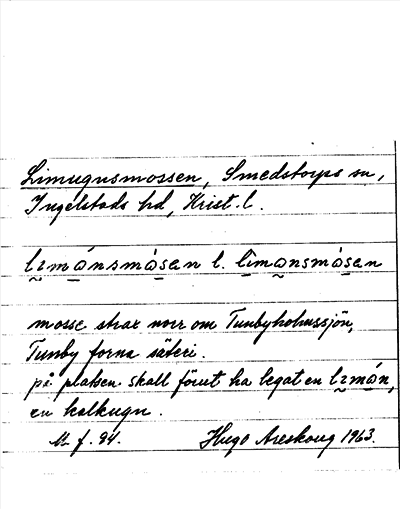 Limugnsmossen, Smedstorps sn,
Ingelstads hd, Krist. l.
lımánsmåsen l. lımansmåsen
mosse strax norr om Tunbyholmssjön,
Tunby forna säteri.
på platsen skall förut ha legat en lımán,
en kalkugn.
M f. 94. Hugo Areskoug 1963.